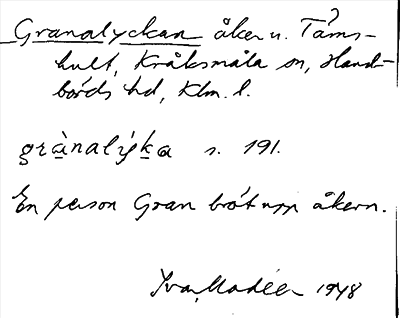 Granalyckan åker u. Täms-
hult, Kråksmåla sn, Hand-
börds hd, Klm. l.
grànalýka s. 191.
En person Gran bröt upp åkern.
Ivar Modéer 1948